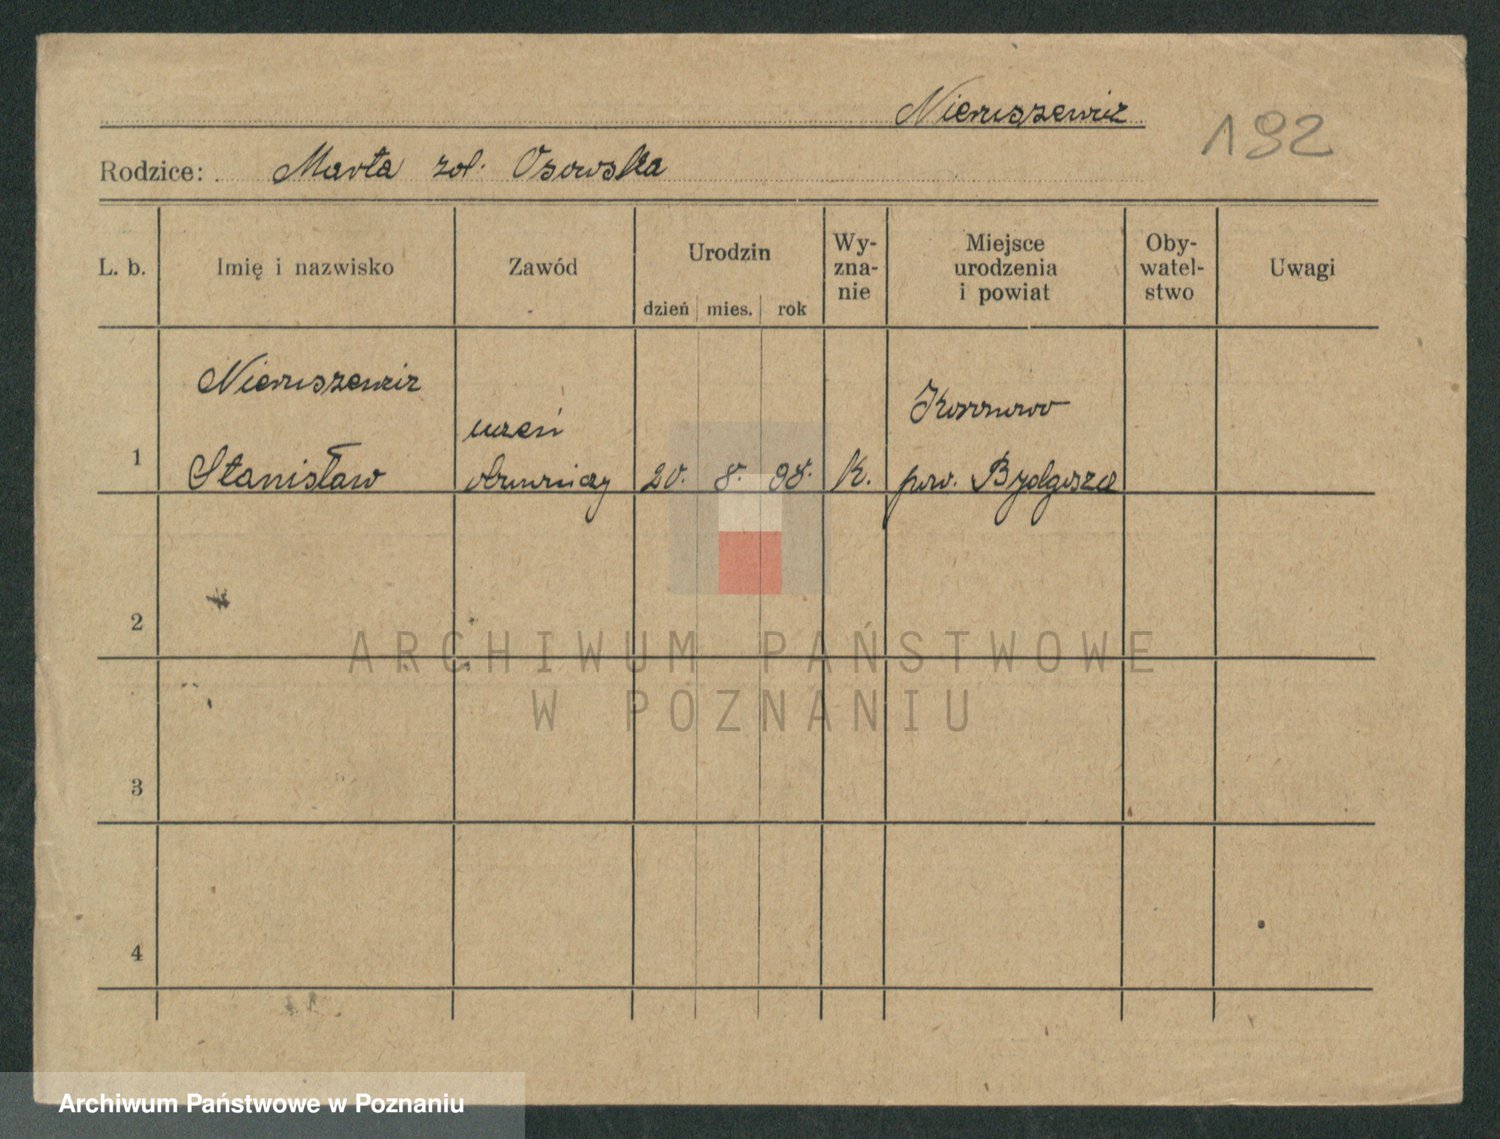 Nieruszewicz
192
Rodzice: Marta zd. Osowska
L. b. Imię i nazwisko Zawód Urodzin dzień mies. rok Wy-zna-nie Miejsce urodzenia i powiat Oby-watel-stwo Uwagi
Nieruszewicz
uczeń
1 Stanisław 20. 8. 98. K. pow. Bydgoszcz
2
3
4
ARCHIWUM PAŃSTWOWE
W POZNANIU
Archiwum Państwowe w Poznaniu